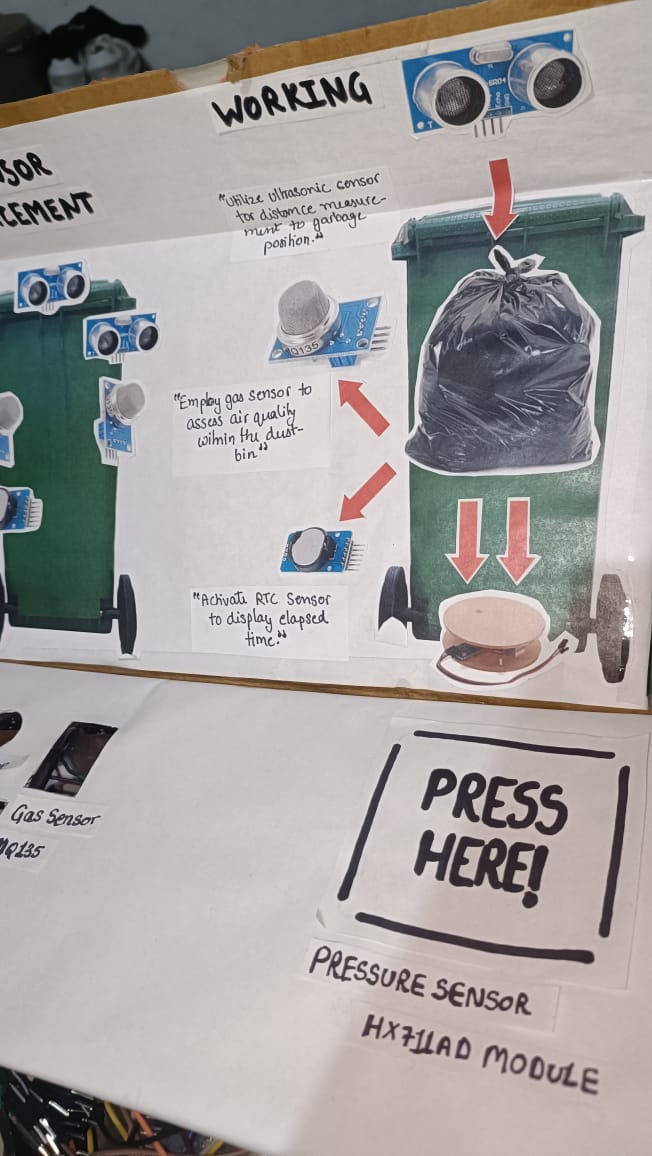 WORKING
SOR
CEMENT
"Utilize ultrasonic sensor
for distance measure-
ment to garbage
position."
Q135
"Employ gas sensor to
assess air quality
within the dust-
bin"
"Activate RTC Sensor
to display elapsed
time."
Gas Sensor
MQ135
PRESS
HERE!
PRESSURE SENSOR
HX711AD MODULE